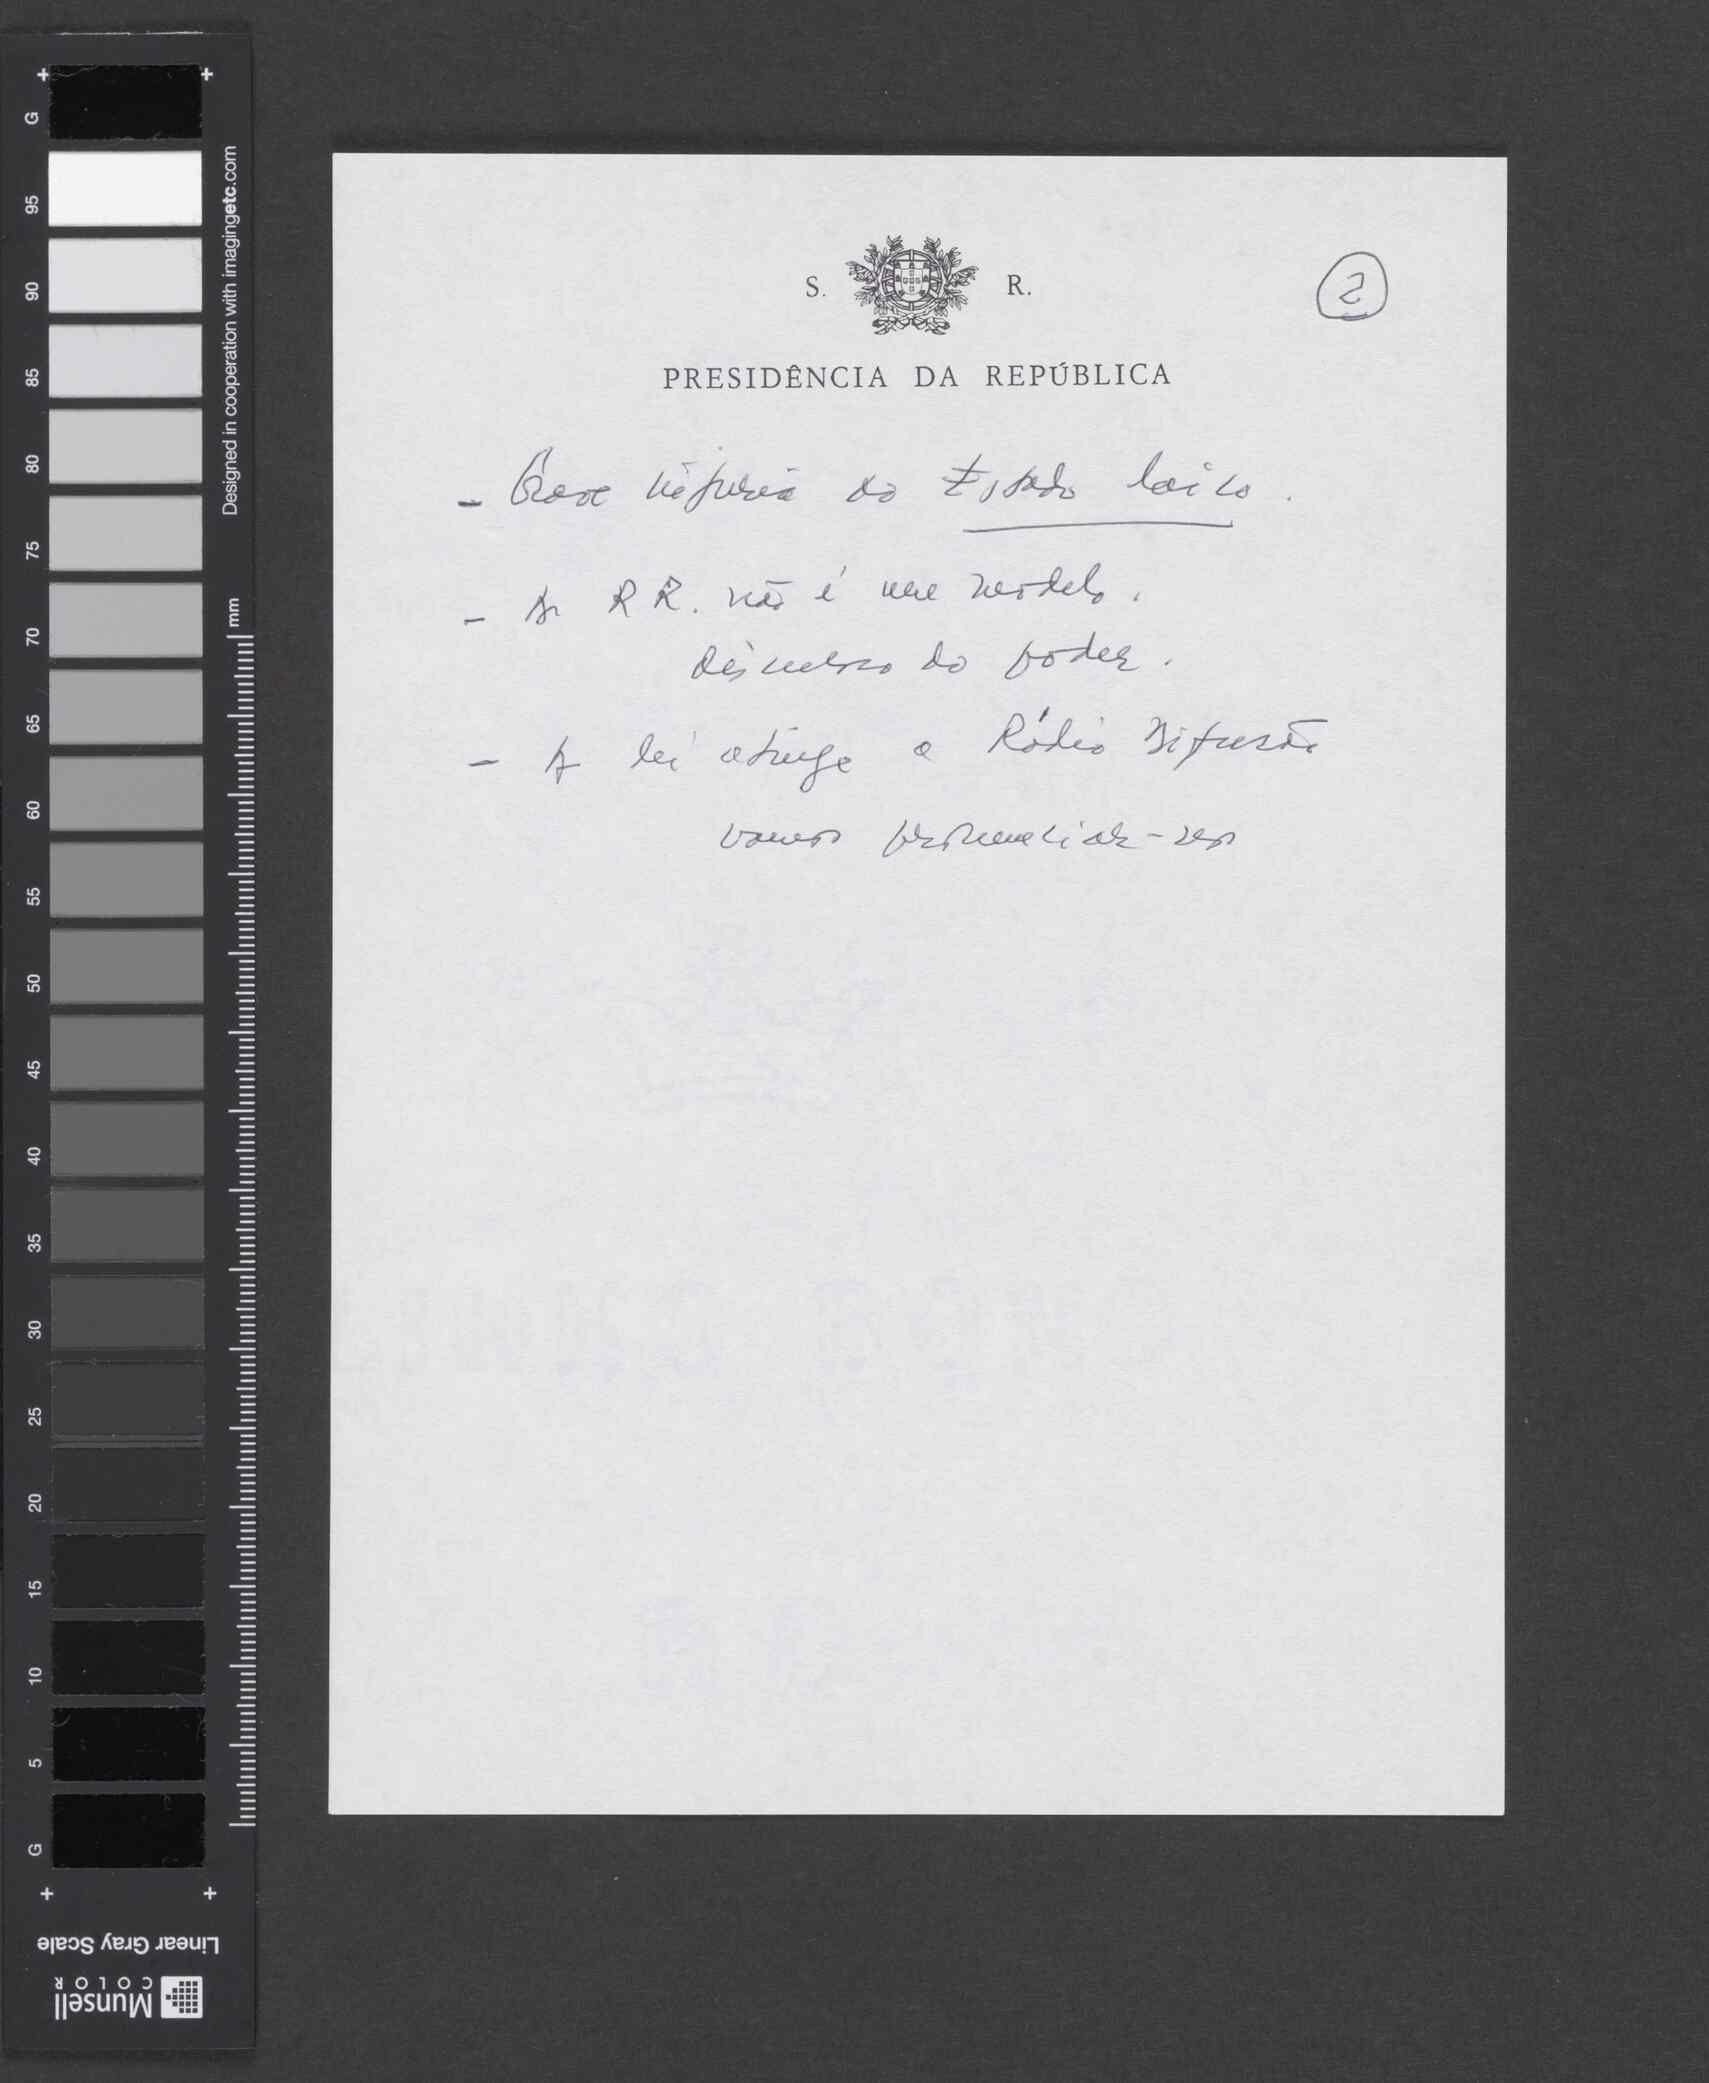 S. R.
2
PRESIDÊNCIA DA REPÚBLICA
- Grave injúria ao Estado laico.
- A RR. não é um modelo.
discurso do poder.
- A lei atinge a Rádio Difusão
vamos pronunciar-nos
G
95
90
85
80
75
70
65
60
55
50
45
40
35
30
25
20
15
10
5
G
Designed in cooperation with imagingetc.com
mm
Linear Gray Scale
Munsell
COLOR